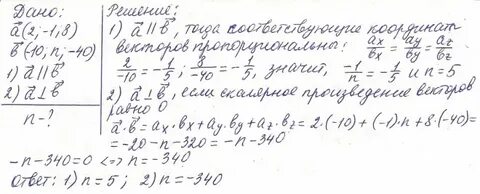 Дано:
a⃗(2;-1;8)
b⃗(-10;n;-40)
1) a⃗ || b⃗
2) a⃗ ⊥ b⃗
n-?
Решение:
1) a⃗ || b⃗, тогда соответствующие координаты
векторов пропорциональны: ax/bx = ay/by = az/bz
2/-10 = -1/5; 8/-40 = -1/5, значит, -1/n = -1/5 и n=5
2) a⃗ ⊥ b⃗, если скалярное произведение векторов
равно 0
a⃗·b⃗ = ax·bx+ay·by+az·bz = 2·(-10)+(-1)·n+8·(-40)=
=-20-n-320=-n-340
-n-340=0 <=> n=-340
Ответ: 1) n=5; 2) n=-340